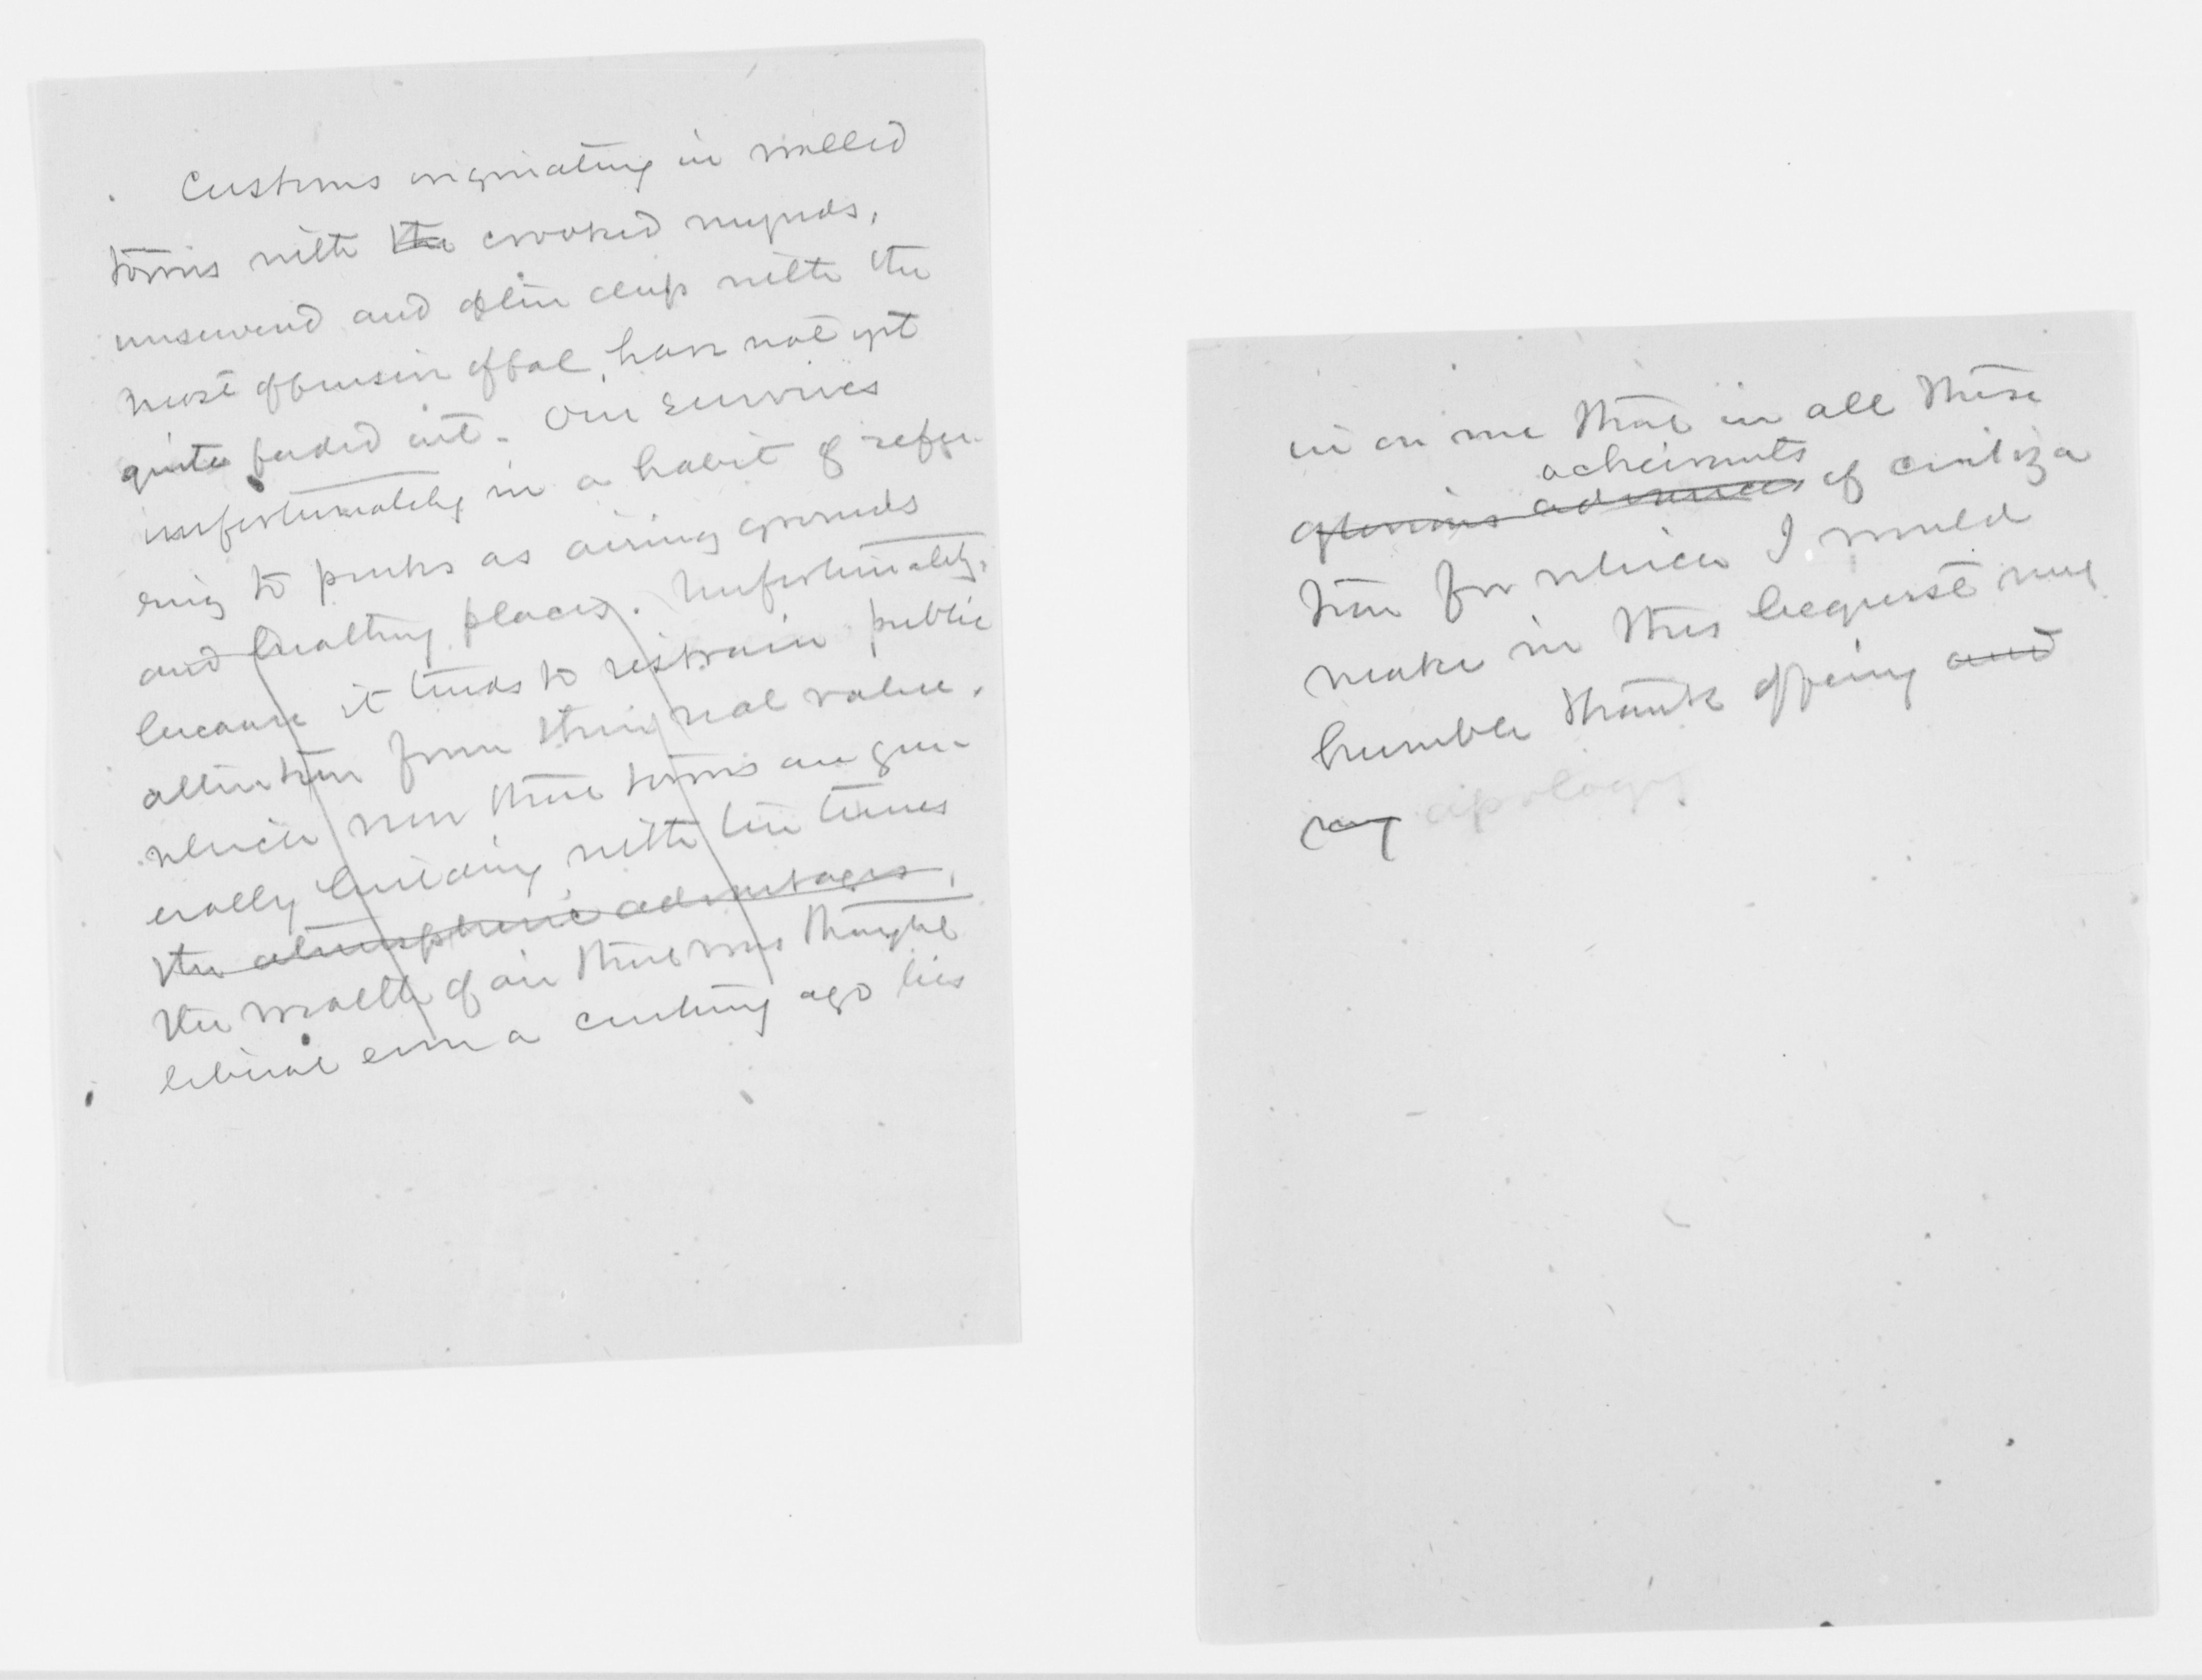 Customs originating in walled
towns with the crooked
unsewered and often deep with the
most offensive offal, have not yet
quite faded out. One survives
unfortunately in a habit of refer-
ring to parks as airing grounds
and breathing places. Unfortunately,
because it tends to restrain public
attention from their real value,
which now that towns are gen-
erally building with ten times
the atmospheric advantages,
the wealth of air that was thought
liberal even a century ago lies
in on me that in all these
acheivments
glorious advances of civiliza
tion for which I would
make in this bequest my
humble thank offering and
my apology